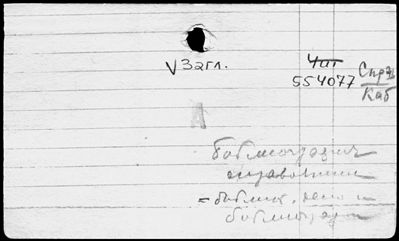 V 32гл. Чит
554077 Спр
Каб
А
библиография
справочники
= библиот. дело и
библиография